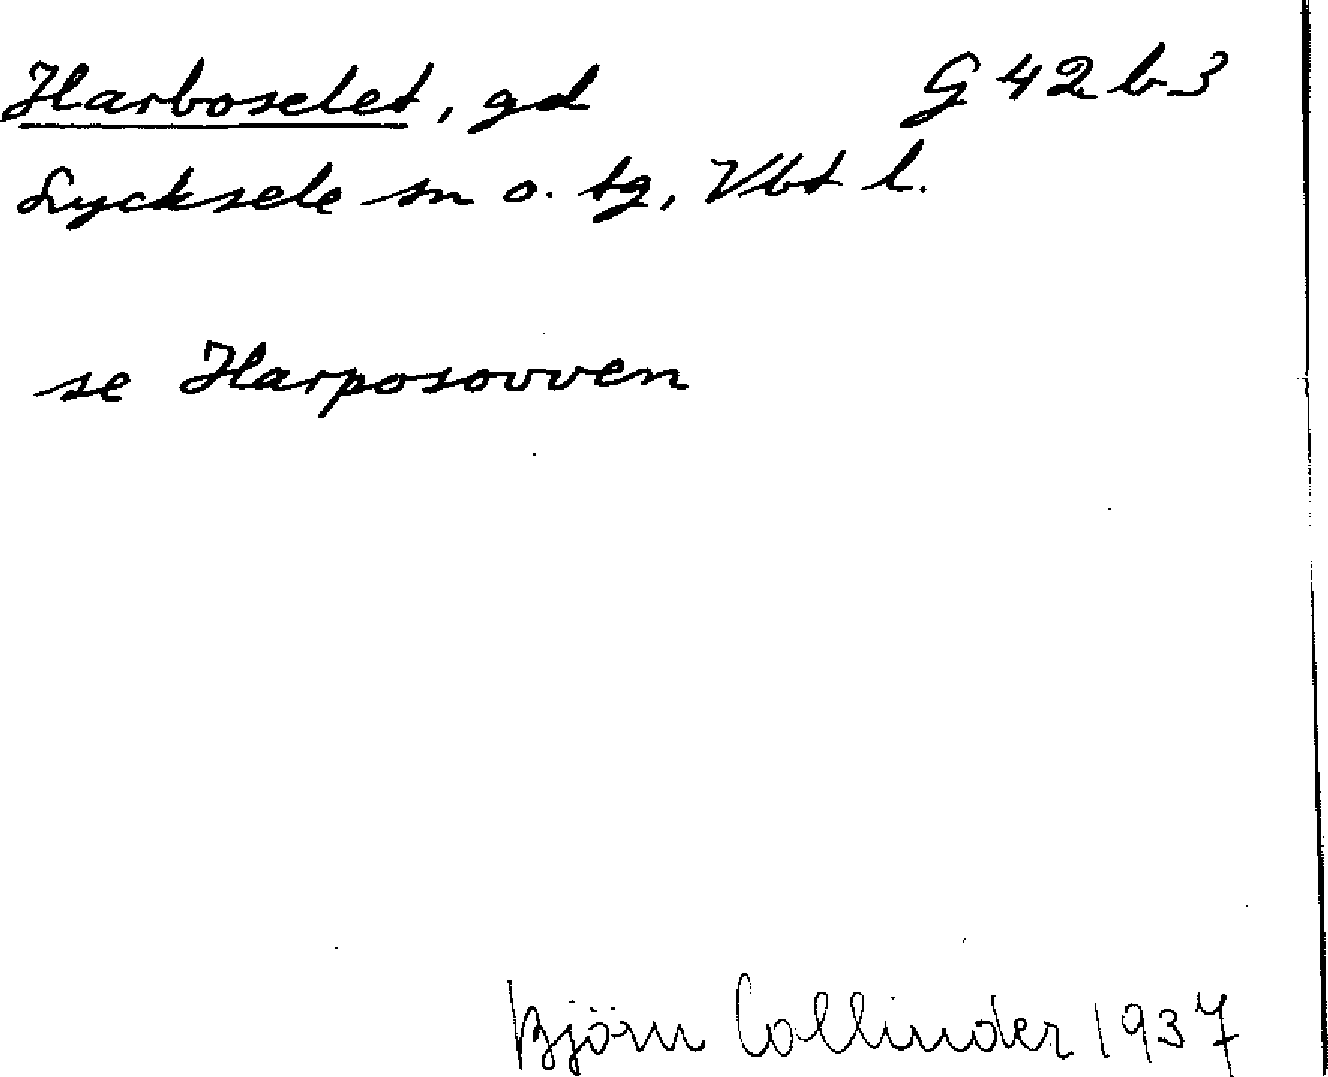 Harboselet, gd G 42 b 3
Lycksele sn o. tg, Vbt l.
se Harposovven
Björn Collinder 1937